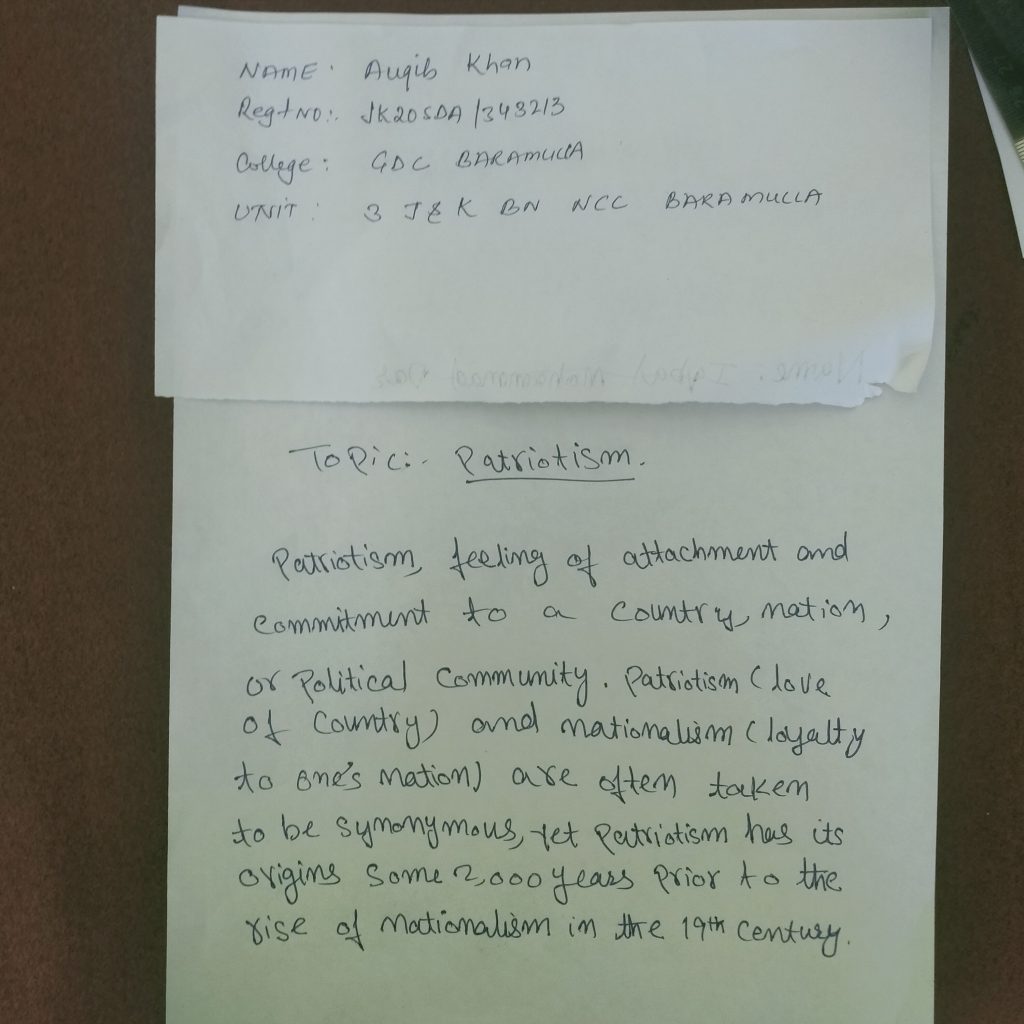 NAME: Auqib Khan
Regt NO:. JK20SDA/343213
College: GDC BARAMULLA
UNIT: 3 J&K BN NCC BARAMULLA
Name: Iqbal Mohammad Dar
Topic:- Patriotism.
Patriotism, feeling of attachment and
commitment to a country, nation,
or Political Community. Patriotism (love
of Country) and nationalism (loyalty
to one's nation) are often taken
to be synonymous, yet Patriotism has its
origins some 2,000 years Prior to the
rise of nationalism in the 19th Century.